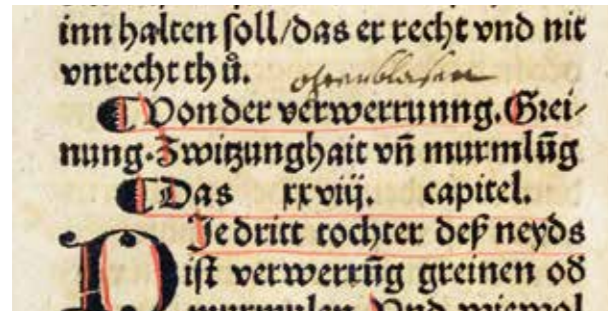 inn halten soll/das er recht vnd nit
vnrecht thů. ohrenblasen
¶ Von der verwerrunng. Grei-
nung. Zwitzunghait vñ murmlũg
¶ Das xxviij. capitel.
DJe dritt tochter deß neyds
ist verwerrũg greinen oď
murmulen. Vnd wiewol